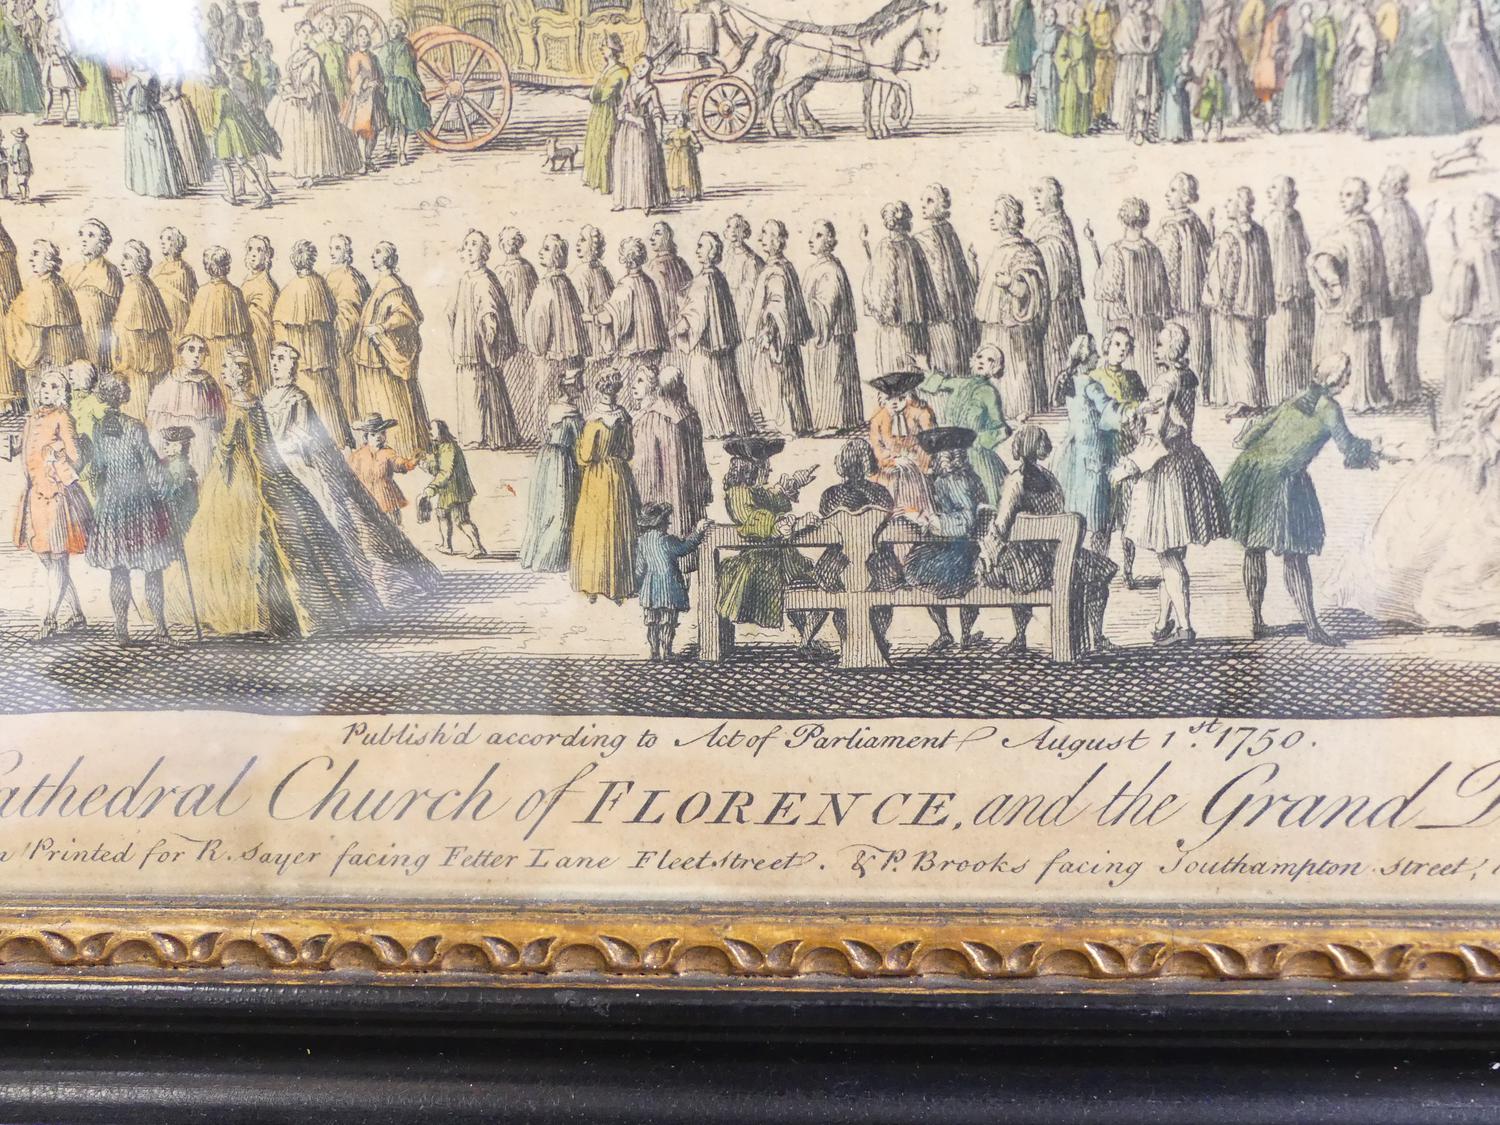 Publish'd according to Act of Parliament August 1st. 1750.
Cathedral Church of FLORENCE, and the Grand
Printed for R. Sayer facing Fetter Lane Fleetstreet. & P. Brooks facing Southampton street,